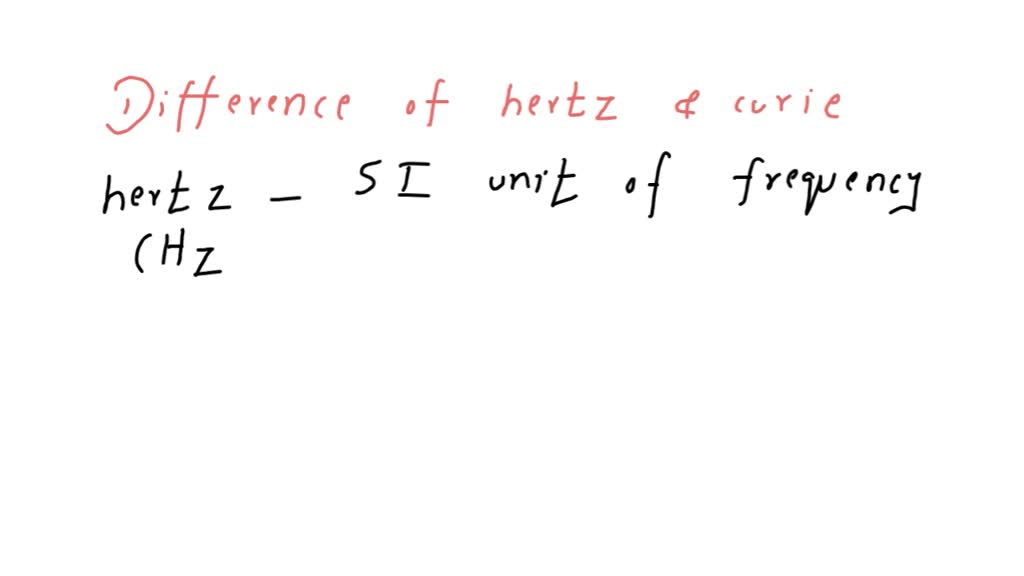 Difference of hertz & curie
hertz - SI unit of frequency
(Hz